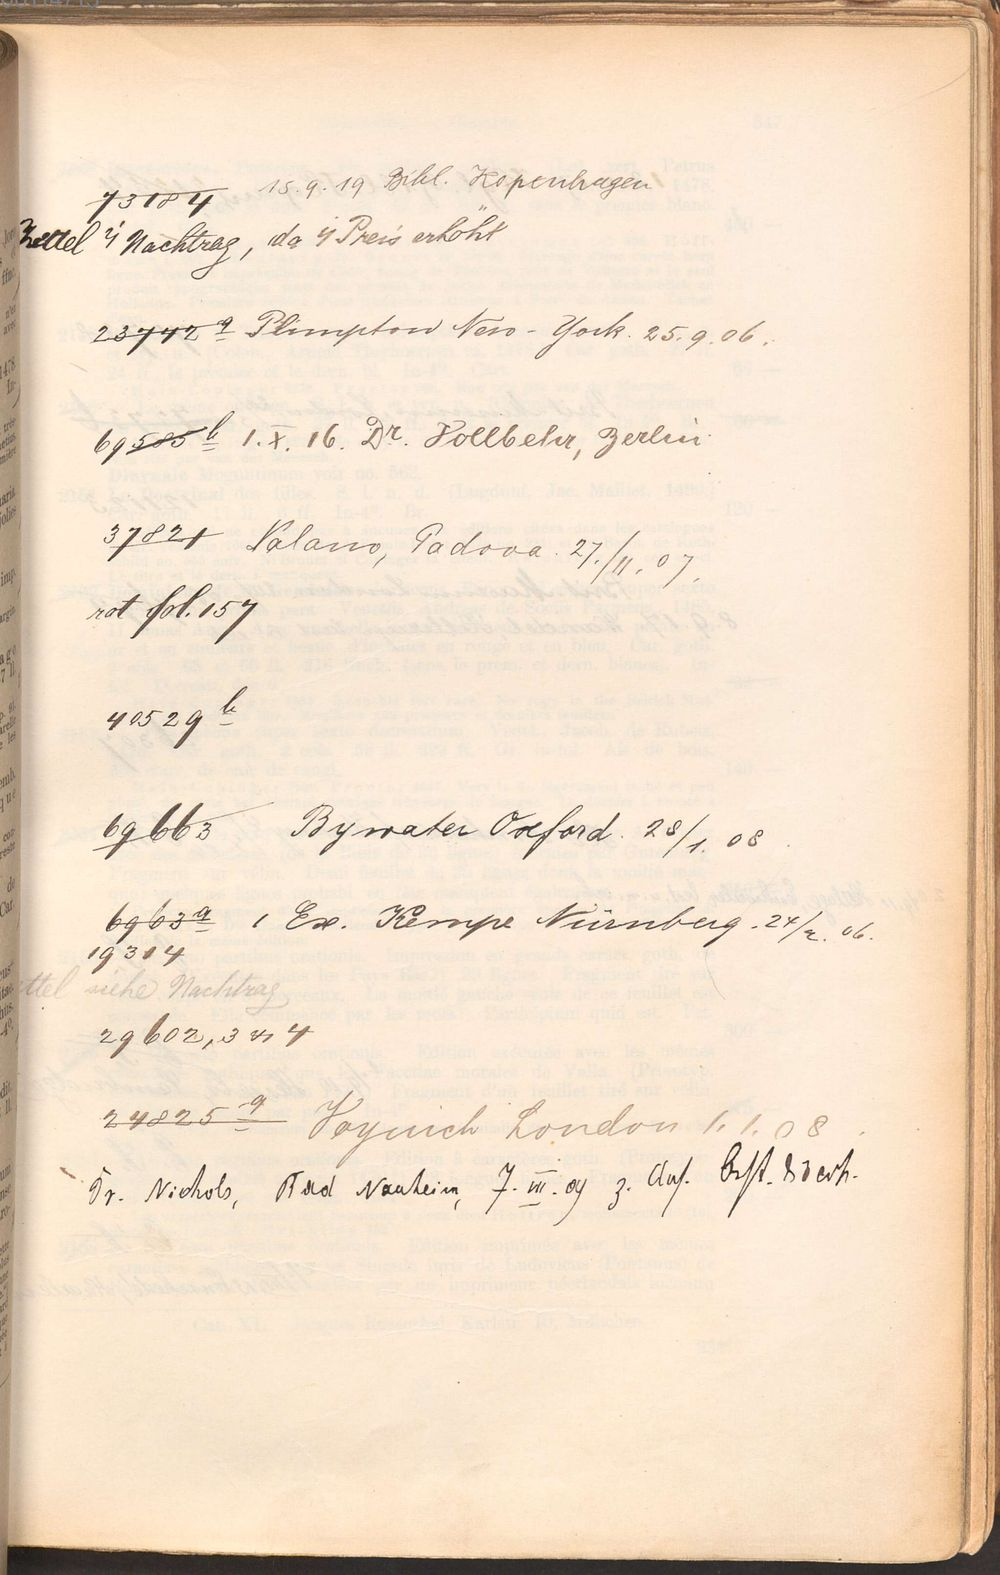 73184 15.9.19 Bibl. Kopenhagen
Zettel i/ Nachtrag, da i/ Preis erhöht
23742 a Plimpton New-York. 25.9.06.
69585 b 1.X.16. Dr. Vollbehr, Berlin
37821 Nalano, Padova. 27./11.07.
rot fol. 157
40529 b
69663 Bywater Oxford. 28/1.08
6963 a 1 Ex. Kempe Nürnberg. 24/2.06.
19314
ttel siehe Nachtrag
29602, 3 u 4
24825 a Voynich London 1.1.08
Dr. Nichols, Bad Nauheim, 7.III.09 z.